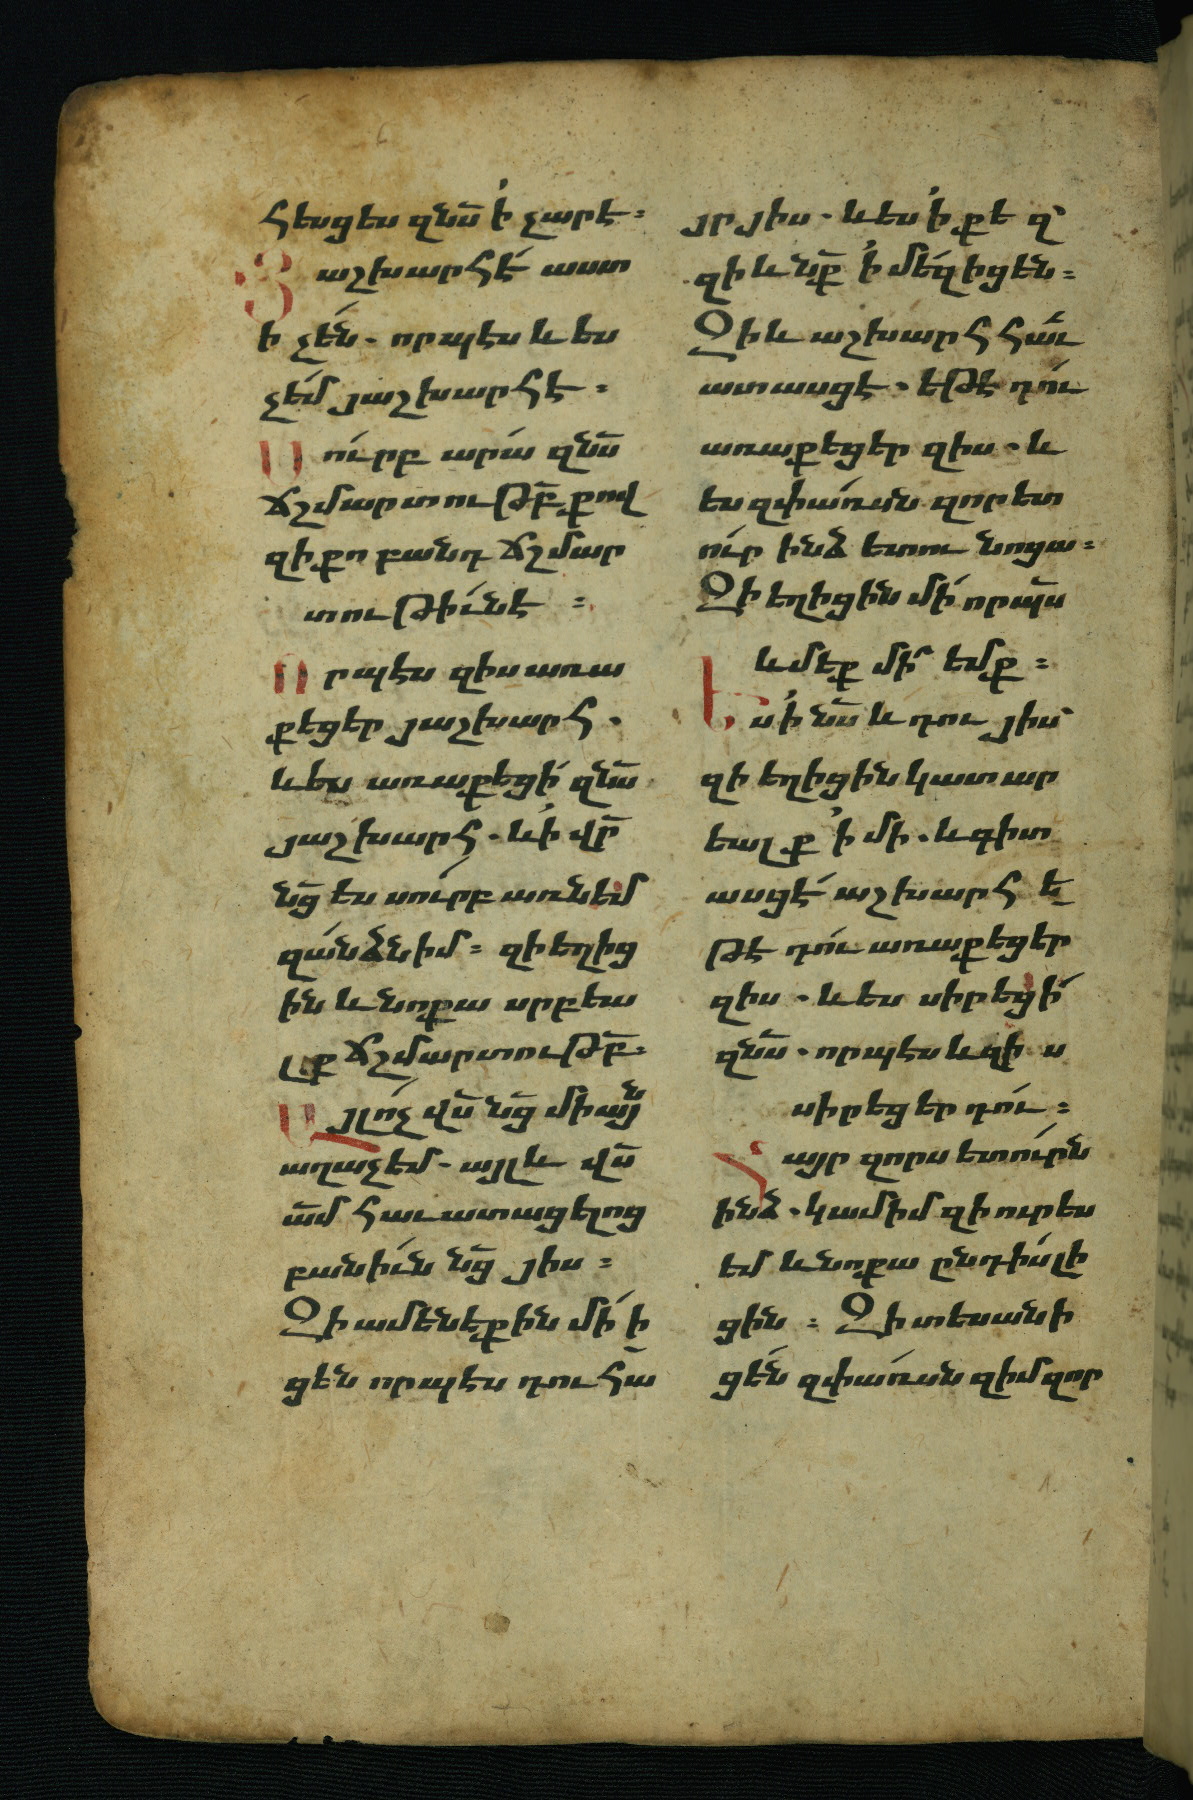 հեսցես զնս՟ ի՛ չարէ։
Յաշխարհէ՛ աստ
ի չե՛ն. որպէս և ես
չե՛մ յաշխարհէ։
Սո՛ւրբ արա՛ զնս՟
ճշմարտութբ՟ քով
զի քո բանդ ճշմար
տութի՛ւնէ։
Որպէս զիս առա
քեցեր յաշխարհ.
և ես առաքեցի՛ զնս՟
յաշխարհ. և ի՛ վր՟
նց՟ ես սո՛ւրբ առնեմ
զա՛նձն իմ։ զի եղից
ի՛ն և նոքա սրբեա
լք ճշմարտութբ՟։
Այլ ո՛չ վս՟ նց՟ միայն՟
աղաչեմ. այլ և վս՟
ամ՟ հաւատացելոց
բանի՛ւն նց՟ յիս։
Զի ամենեքին մի՛ ի
ցեն որպէս դու հա՟
յր յիս. և ես ի՛ քե զ՟
զի և նք՟ ի՛ մե՛զ իցեն։
Զի և աշխարհ հա՛ւ
ատասցէ. եթէ դո՛ւ
առաքեցեր զիս. և
ես զփա՛ռսն զոր ետ
ո՛ւր ինձ ետու նոցա։
Զի եղիցին մի՛ որպս՟
և մեք մի՟ եմք։
Ես ի՛ նս՟ և դու յիս՟
զի եղիցին կատար
եալք ի՛ մի. և գիտ
ասցէ՛ աշխարհ ե
թէ դո՛ւ առաքեցեր
զիս. և ես սիրեցի՛
զնս՟. որպէս և զի ս
սիրեցեր դո՛ւ։
Հայր զորս ետո՛ւրն
ինձ. կամիմ զի ուր ես
եմ և նոքա ընդ ի՛ս լի
ցին։ Զի տեսանի
ցե՛ն զփա՛ռսն զիմ զոր